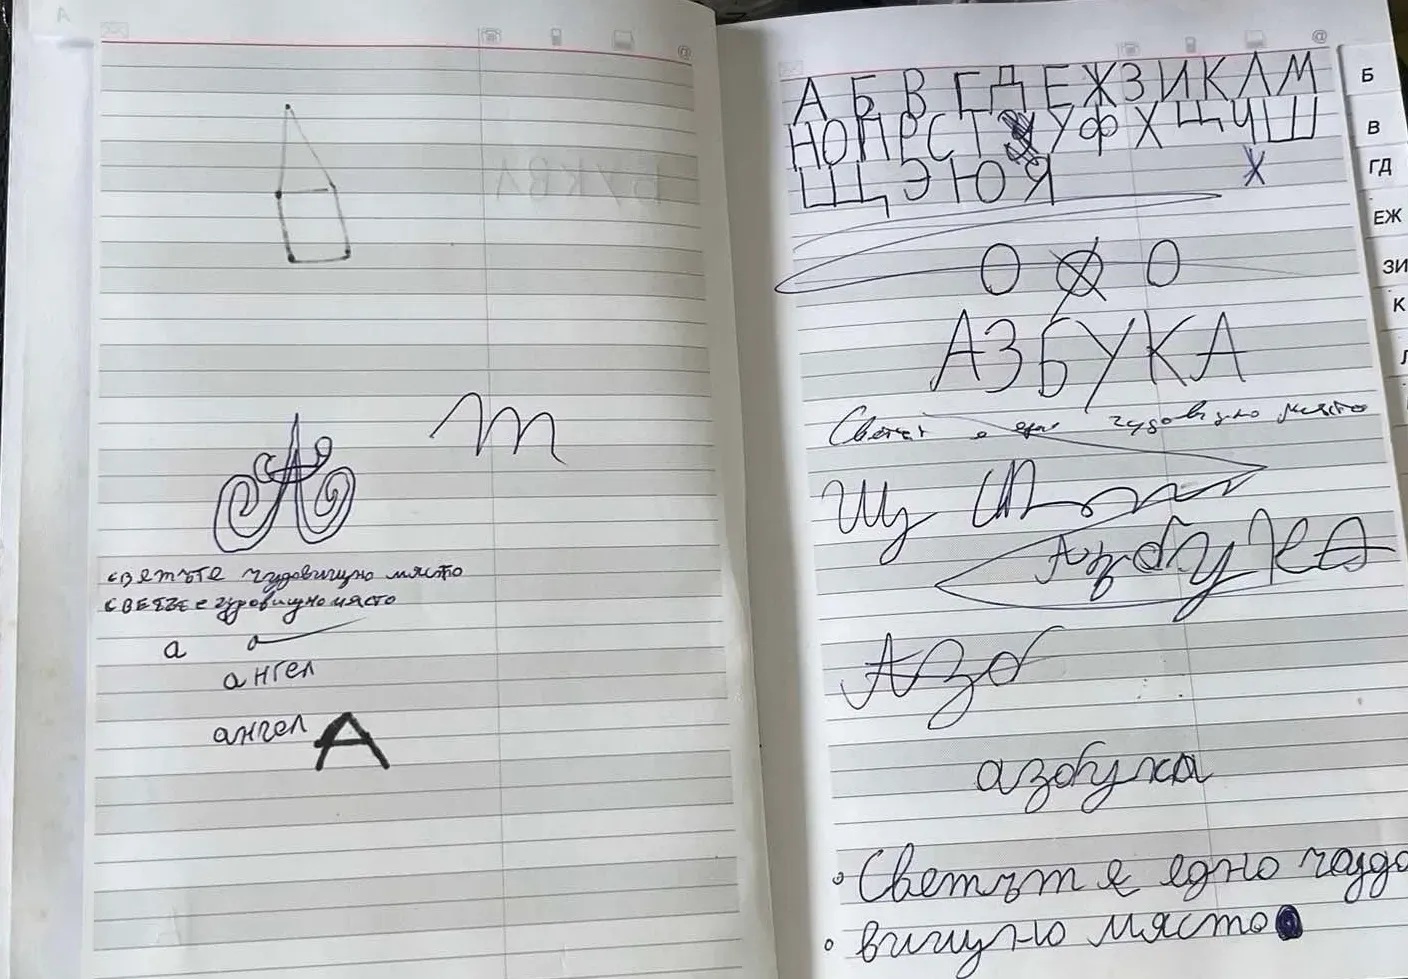 БУКВА
m
А
светът е чудовищно място
светът е чудовищно място
а а
ангел
ангел А
А Б В Г Д Е Ж З И К Л М
Н О П Р С Т У Ф Х Ц Ч Ш
Щ Э Ю Я Х
О О О
АЗБУКА
Светът е едно чудовищно място
Щ
Азбука
Азб
азбука
Светът е едно чудо
вищно място
Б
В
ГД
ЕЖ
ЗИ
К